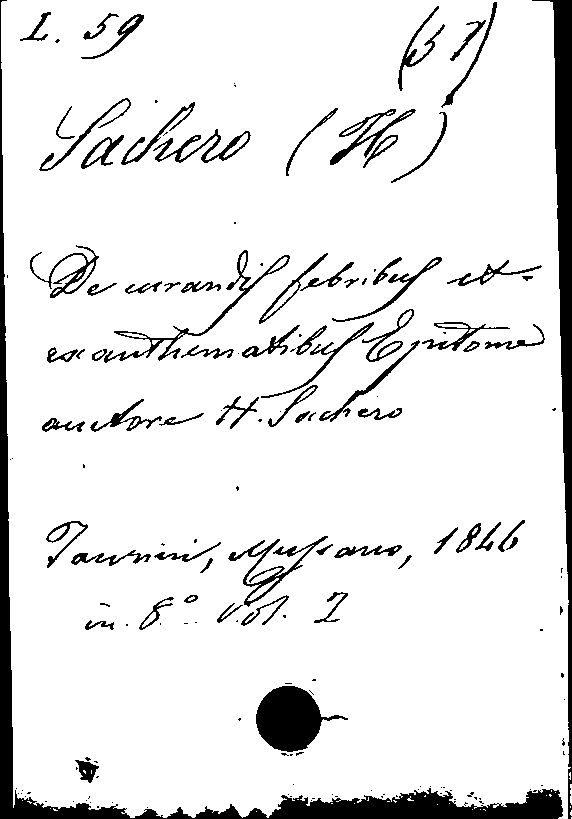 L. 59 (57)
Sachero (H)
De curandis febribus et
exanthematibus Epitome
auctore H. Sachero
Taurini, Mussano, 1846
in 8° Vol. I